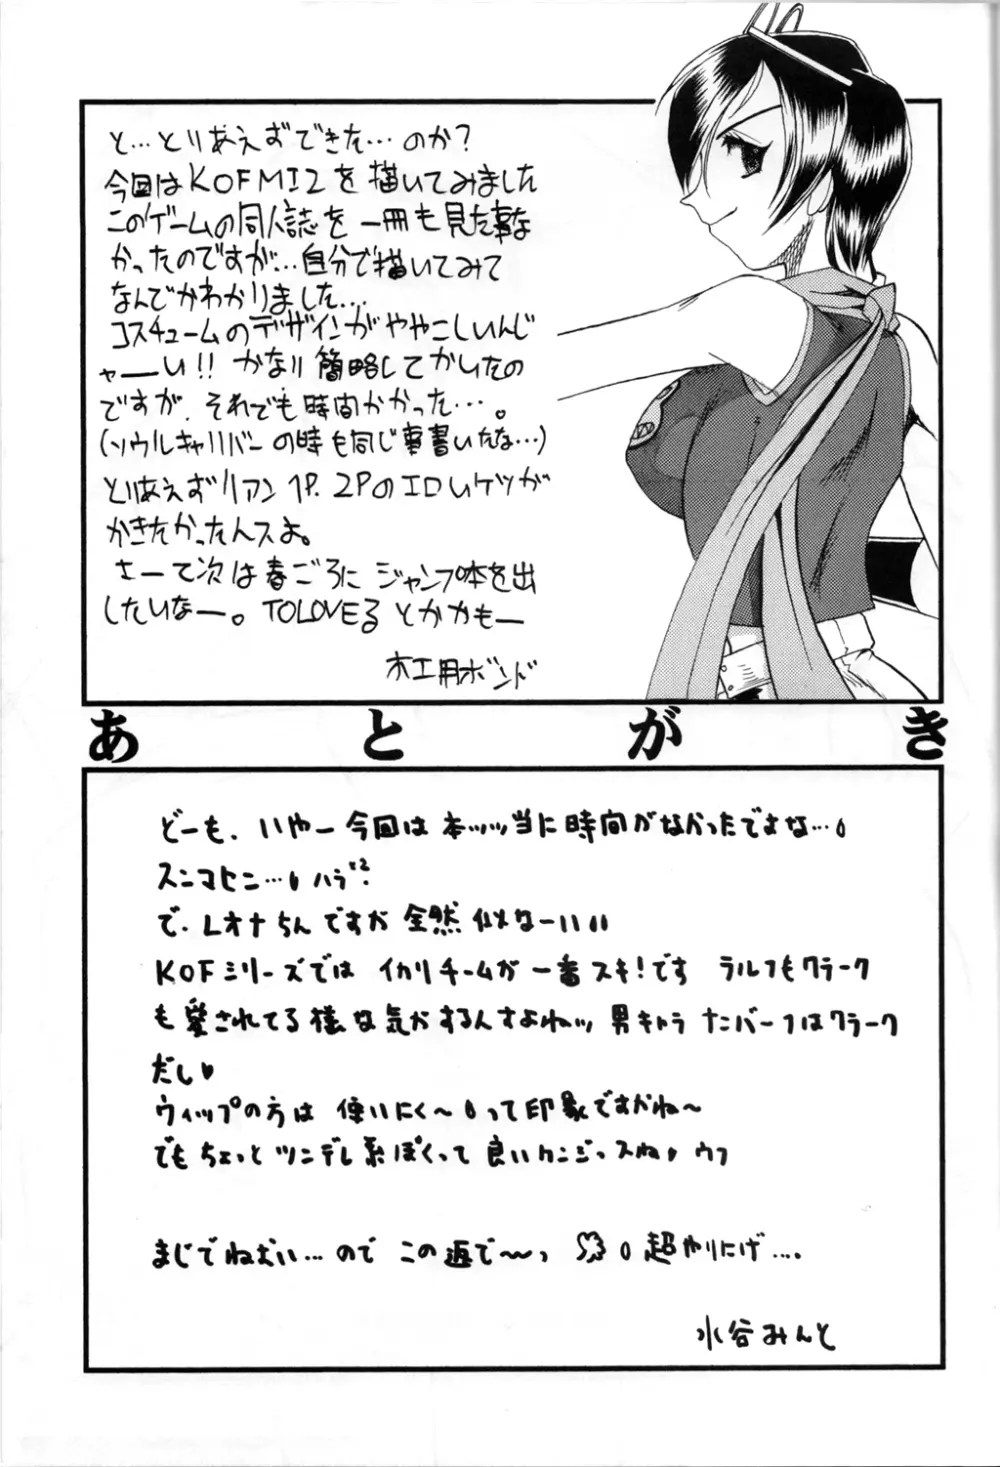 と…とりあえずできた…のか?
今回はKOFMI2を描いてみました
このゲームの同人誌を一冊も見た事な
かったのですが…自分で描いてみて
なんでかわかりました…
コスチュームのデザインがややこしいんじ
ゃーい!!かなり簡略してかいたの
ですが、それでも時間かかった…。
(ソウルキャリバーの時も同じ事書いたな…)
とりあえずリアン1P.2Pのエロいケツが
かきたかったんスよ。
さーて次は春ごろにジャンプ本を出
したいなー。TOLOVEるとかかもー
木工用ボンド
あとがき
どーも、いやー今回は本ッッ当に時間がなかったですよな…
スンマヒン…
で、レオナちんですが全然似なーい
KOFシリーズではイカリチームが一番スキ!です ラルフもクラーク
も愛されてる様な気がするんすよねッ 男キャラナンバー1はクラーク
だし♥
ウィップの方は使いにく〜いって印象ですかね〜
でもちょっとツンデレ系ぽくって良いカンジっスね♥ウフ
まじでねむい…のでこの返で〜っ 超やりにげ….
水谷みんと